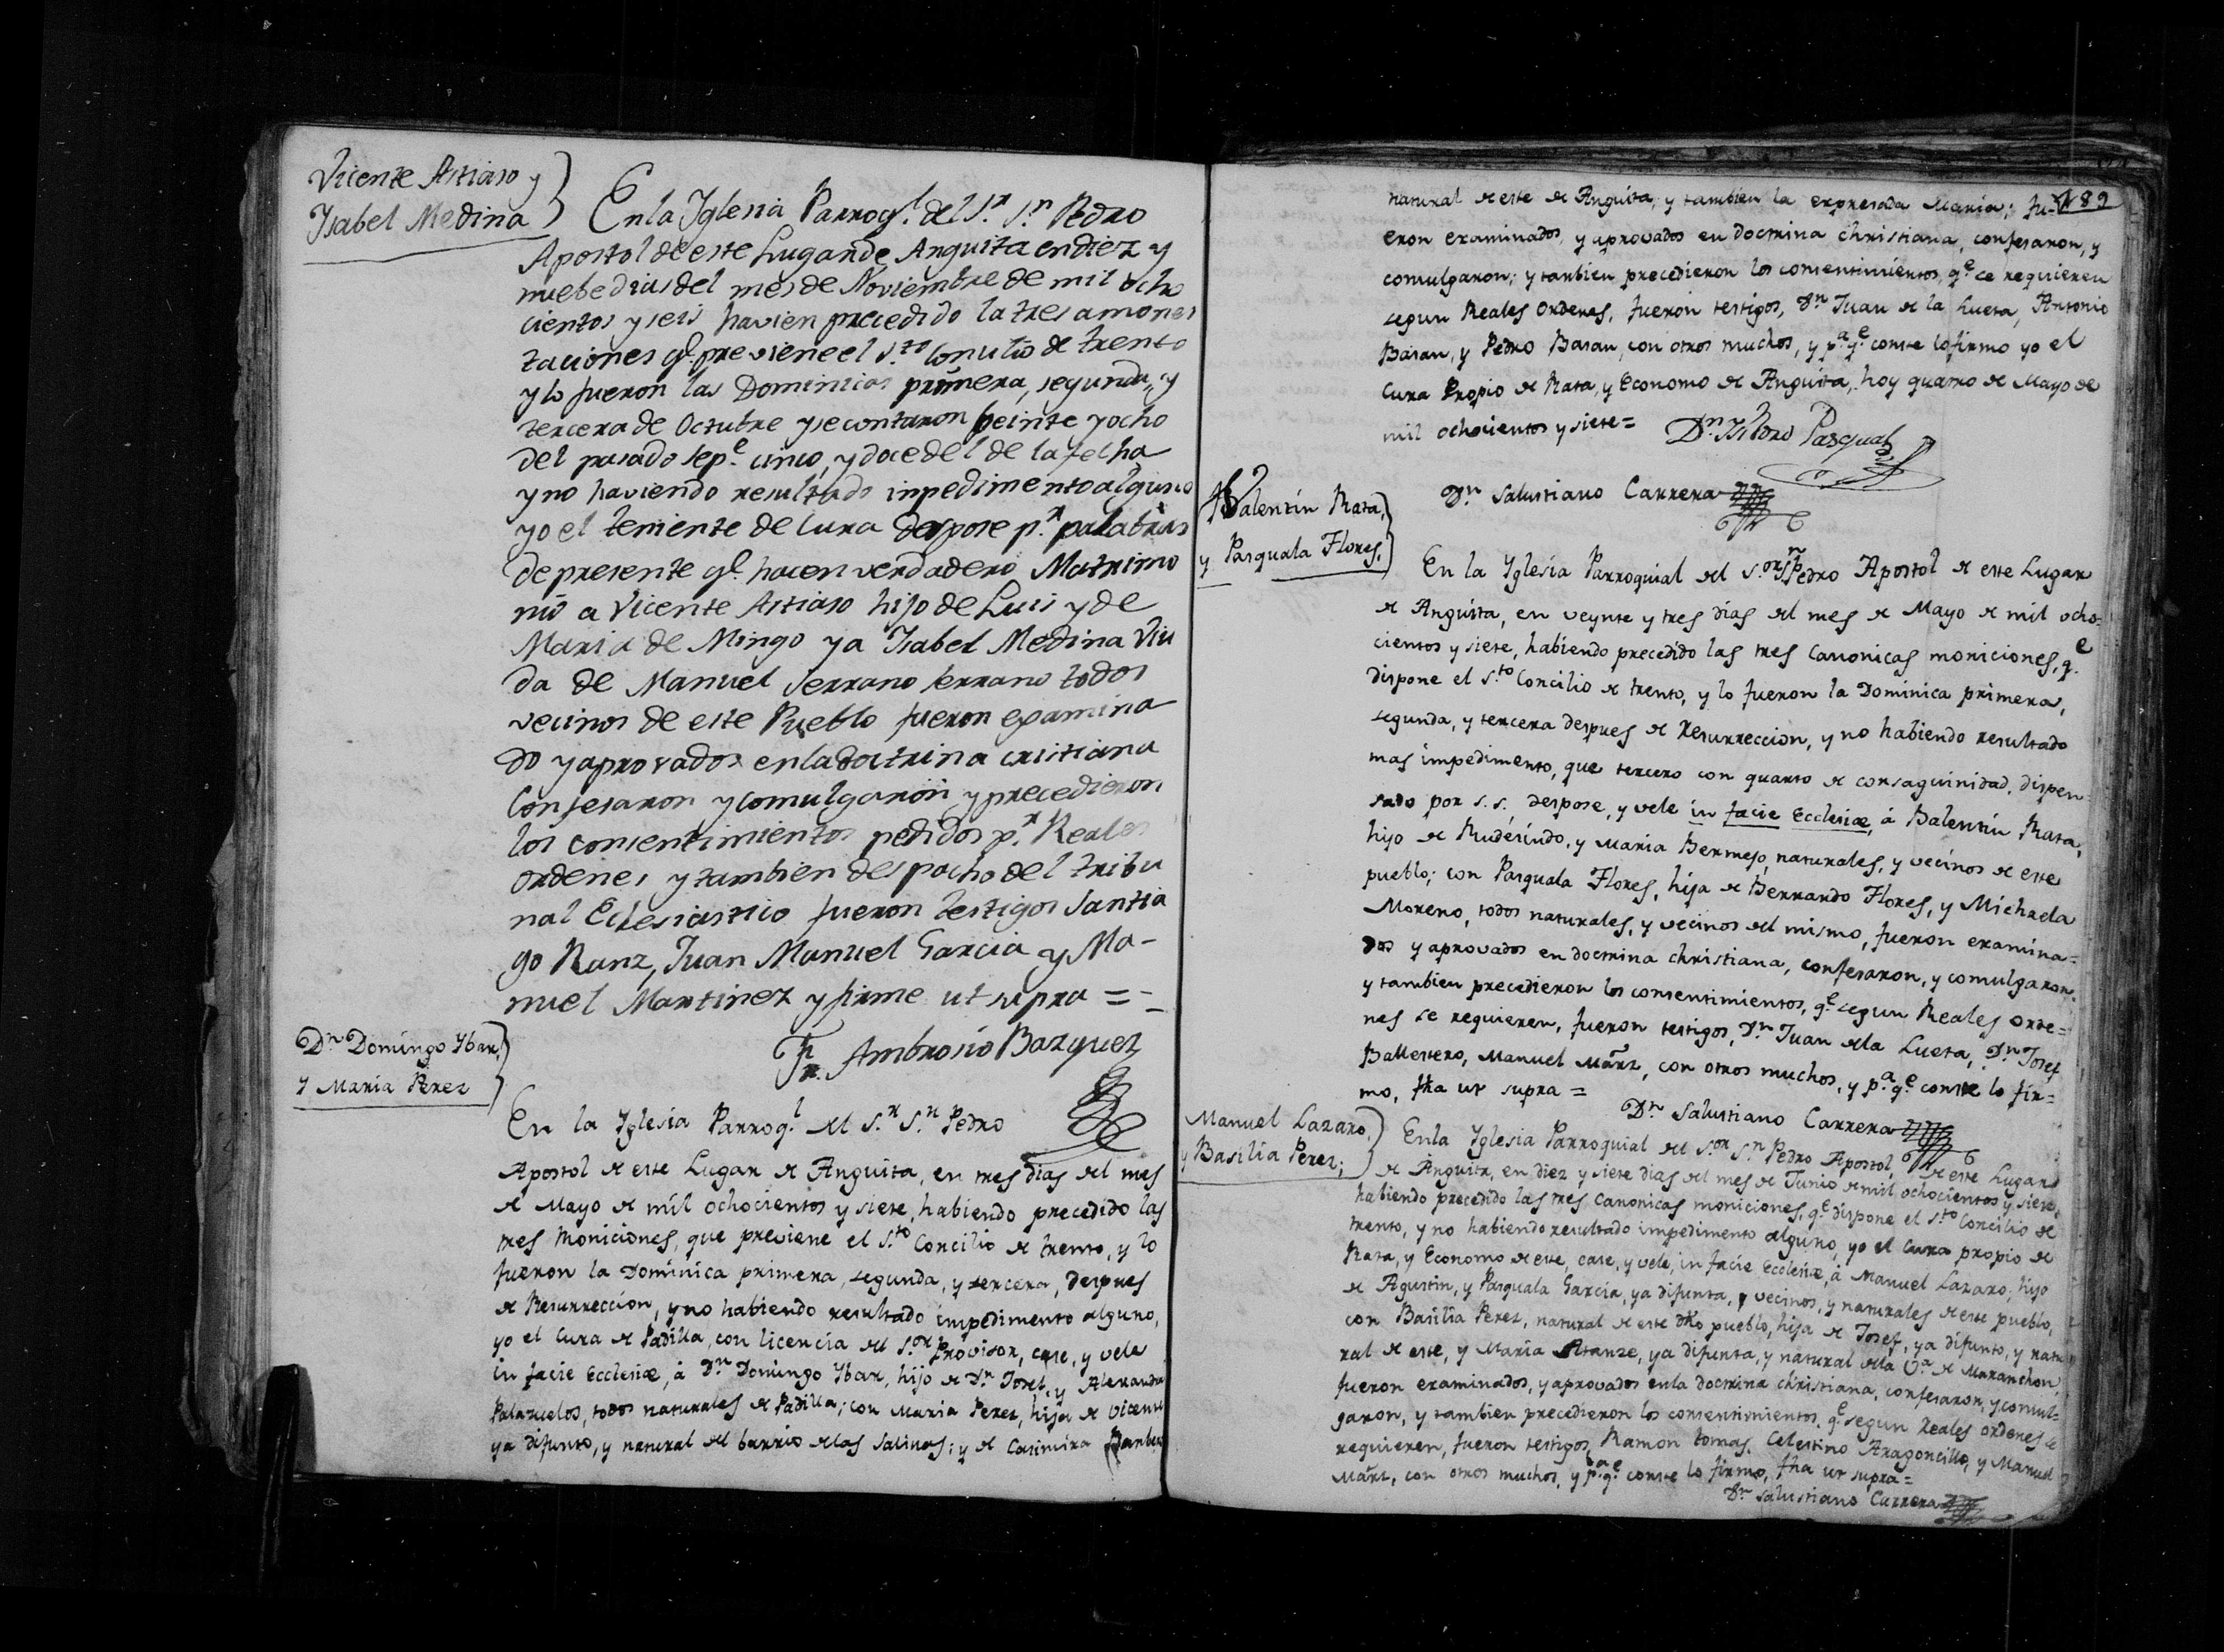 Vicente Astiaso y
Isabel Medina
En la Yglesia Parroq.l del S.r S.n Pedro
Apostol de este Lugar de Anguita en diez y
nuebe dias del mes de Noviembre de mil ocho
cientos y seis havien precedido la tres amones
taciones q.e previene el S.to Conulio de trento
y lo fueron las Dominicas primera, segunda, y
tercera de Octubre y se contaron beinte y ocho
del pasado Sep.e cinco, y doce del de la fecha
y no haviendo resultado inpedimento alguno
yo el teniente de Cura despose p.r palabras
de presente q.e hacen verdadero Matrimo
nio a Vicente Astiaso hijo de Luis y de
Maria de Mingo y a Isabel Medina Viu
da de Manuel Serrano serrano todos
vecinos de este Pueblo fueron examina
do y aprovados en la doctrina cristiana
Confesaron y comulgaron y precedieron
los consentimientos pedidos p.r Reales
ordenes y tambien despacho del tribu
nal Eclesiastico fueron testigos Santia
go Ranz, Juan Manuel Garcia y Ma-
nuel Martinez y firme ut supra =-
Fr. Ambrosio Bazquez
D.n Domingo Ybar,
y Maria Perez
En la Yglesia Parroq.l del S.r S.n Pedro
Apostol de este Lugar de Anguita, en tres dias del mes
de Mayo de mil ochocientos y siete, habiendo precedido las
tres moniciones, que previene el S.to Concilio de trento, y lo
fueron la Dominica primera, segunda, y tercera, despues
de Resurreccion, y no habiendo resultado impedimento alguno,
yo el Cura de Padilla, con licencia del S.or Provisor, case, y vele
in facie Ecclesiæ, à D.n Domingo Ybar, hijo de D.n Josef, y Alexandra
Palazuelos, todos naturales de Padilla; con Maria Perez, hija de Vicente
ya difunto, y natural del barrio de las Salinas; y de Casimira
189
natural de este de Anguita, y tambien la expresada Maria; fu-
eron examinados, y aprovados en doctrina christiana, confesaron, y
comulgaron; y tanbien precedieron los consentimientos, q.e ce requieren
segun Reales Ordenes, fueron testigos, D.n Juan de la Lueta, Antonio
Basan, y Pedro Basan, con otros muchos, y p.a q.e conste lo firmo yo el
Cura Propio de Rata, y Economo de Anguita, hoy quatro de Mayo de
mil ochocientos y siete= D.n Isidro Pasqual
D.n Salustiano Carrera
Valentin Rata,
y Pasquala Flores.
En la Yglesia Parroquial del S.or S.n Pedro Apostol de este Lugar
de Anguita, en veynte y tres dias del mes de Mayo de mil ocho=
cientos y siete, habiendo precedido las tres Canonicas moniciones, q.e
dispone el S.to Concilio de trento, y lo fueron la Dominica primera,
segunda, y tercera despues de Resurreccion, y no habiendo resultado
mas impedimento, que tercero con quarto de consaguinidad, dispen
sado por S.S. despose, y vele in facie Ecclesiæ, à Balentin Rata,
hijo de Rudesindo, y Maria Bermejo, naturales, y vecinos de este
pueblo; con Pasquala Flores, hija de Bernardo Flores, y Michaela
Moreno, todos naturales, y vecinos del mismo, fueron examina=
dos y aprovados en doctrina christiana, confesaron, y comulgaron,
y tambien precedieron los consentimientos, q.e segun Reales Orde=
nes se requieren, fueron testigos, D.n Juan de la Lueta, D.n Josef
Ballestero, Manuel Mãrz, con otros muchos, y p.a q.e conste lo fir=
mo, fha ut supra =
D.n Salustiano Carrera
Manuel Lazaro,
y Basilia Perez;
En la Yglesia Parroquial del S.or S.n Pedro Apostol de este Lugar
de Anguita, en diez y siete dias del mes de Junio de mil ochocientos y siete,
habiendo precedido las tres Canonicas moniciones, q.e dispone el S.to Concilio de
trento, y no habiendo resultado impedimento alguno, yo el Cura propio de
Rata, y Economo de este, case, y vele, in facie Ecclesiæ, à Manuel Lazaro, hijo
de Agustin, y Pasquala Garcia, ya difunta, y vecinos, y naturales de este pueblo,
con Basilia Perez, natural de este dho pueblo, hija de Josef, ya difunto, y natu
ral de este, y Maria Atanze, ya difunta, y natural de la V.a de Maranchon,
fueron examinados, y aprovados en la doctrina christiana, confesaron, y comul=
garon, y tambien precedieron los consentimientos, q.e segun Reales ordenes se
requieren, fueron testigos, Ramon tomas, Celestino Aragoncillo, y Manuel
Mãrz, con otros muchos, y p.a q.e conste lo firmo, fha ut supra=
D.n Salustiano Carrera